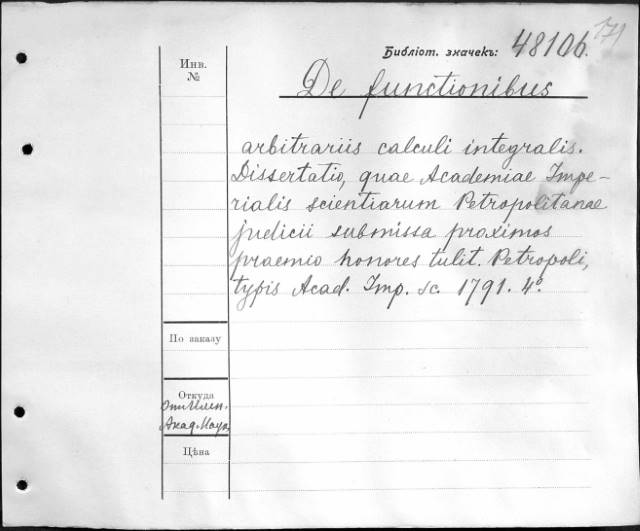 171
Библіот. значекъ: 48106.
Инв.
№
De functionibus
arbitrariis calculi integralis.
Dissertatio, quae Academiae Impe-
rialis scientiarum Petropolitanae
judicii submissa proximos
praemio honores tulit. Petropoli,
typis Acad. Imp. sc. 1791. 4°.
По заказу
Откуда
Акад. Наук
Цѣна